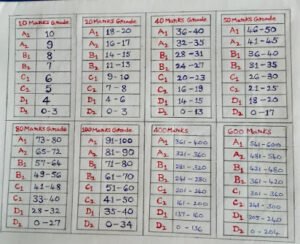 10 Marks Grade
A1 10
A2 9
B1 8
B2 7
C1 6
C2 5
D1 4
D2 0-3
20 Marks Grade
A1 18-20
A2 16-17
B1 14-15
B2 11-13
C1 9-10
C2 7-8
D1 4-6
D2 0-3
40 Marks Grade
A1 36-40
A2 32-35
B1 28-31
B2 24-27
C1 20-23
C2 16-19
D1 14-15
D2 0-13
50 Marks Grade
A1 46-50
A2 41-45
B1 36-40
B2 31-35
C1 26-30
C2 21-25
D1 18-20
D2 0-17
80 Marks Grade
A1 73-80
A2 65-72
B1 57-64
B2 49-56
C1 41-48
C2 33-40
D1 28-32
D2 0-27
100 Marks Grade
A1 91-100
A2 81-90
B1 71-80
B2 61-70
C1 51-60
C2 41-50
D1 35-40
D2 0-34
400 Marks
A1 361-400
A2 321-360
B1 281-320
B2 241-280
C1 201-240
C2 161-200
D1 137-160
D2 0-136
600 Marks
A1 541-600
A2 481-540
B1 421-480
B2 361-420
C1 301-360
C2 241-300
D1 205-240
D2 0-204